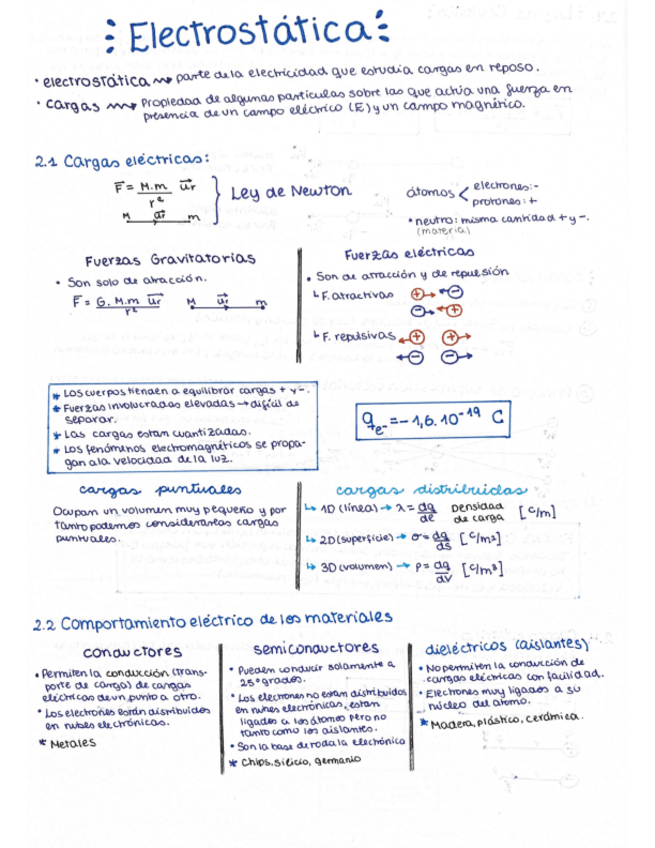 Electrostática
· electrostática parte de la electricidad que estudia cargas en reposo.
· cargas Propiedad de algunas partículas sobre las que actúa una fuerza en
presencia de un campo eléctrico (E) y un campo magnético.
2.1 Cargas eléctricas:
F = M.m ur
r²
M ur m
Ley de Newton
átomos < electrones: -
protones: +
* neutro: misma cantidad + y -.
(materia)
Fuerzas Gravitatorias
· Son solo de atracción.
F = G.M.m ur
r²
M ur m
Fuerzas eléctricas
· Son de atracción y de repulsión
↳ F. atractivas + → ← -
- → ← +
↳ F. repulsivas ← + + →
← - - →
* Los cuerpos tienden a equilibrar cargas + y -.
* Fuerzas involucradas elevadas → difícil de
separar.
* Las cargas estan cuantizadas.
* Los fenómenos electromagnéticos se propa-
gan a la velocidad de la luz.
qe- = -1,6. 10⁻¹⁹ C
cargas puntuales
Ocupan un volumen muy pequeño y por
tanto podemos considerarlas cargas
puntuales.
cargas distribuidas
↳ 1D (línea) → λ = dq/de Densidad de carga [C/m]
↳ 2D (superficie) → σ = dq/ds [C/m²]
↳ 3D (volumen) → ρ = dq/dV [C/m³]
2.2 Comportamiento eléctrico de los materiales
conductores
· Permiten la conducción (trans-
porte de carga) de cargas
eléctricas de un punto a otro.
· Los electrones están distribuidos
en nubes electrónicas.
* Metales
semiconductores
· Pueden conducir solamente a
25º grados.
· Los electrones no estan distribuidos
en nubes electrónicas, estan
ligados a los átomos pero no
tanto como los aislantes.
· Son la base de toda la electrónica
* Chips, silicio, germanio
dieléctricos (aislantes)
· No permiten la conducción de
cargas eléctricas con facilidad.
· Electrones muy ligados a su
núcleo del átomo.
* Madera, plástico, cerámica.